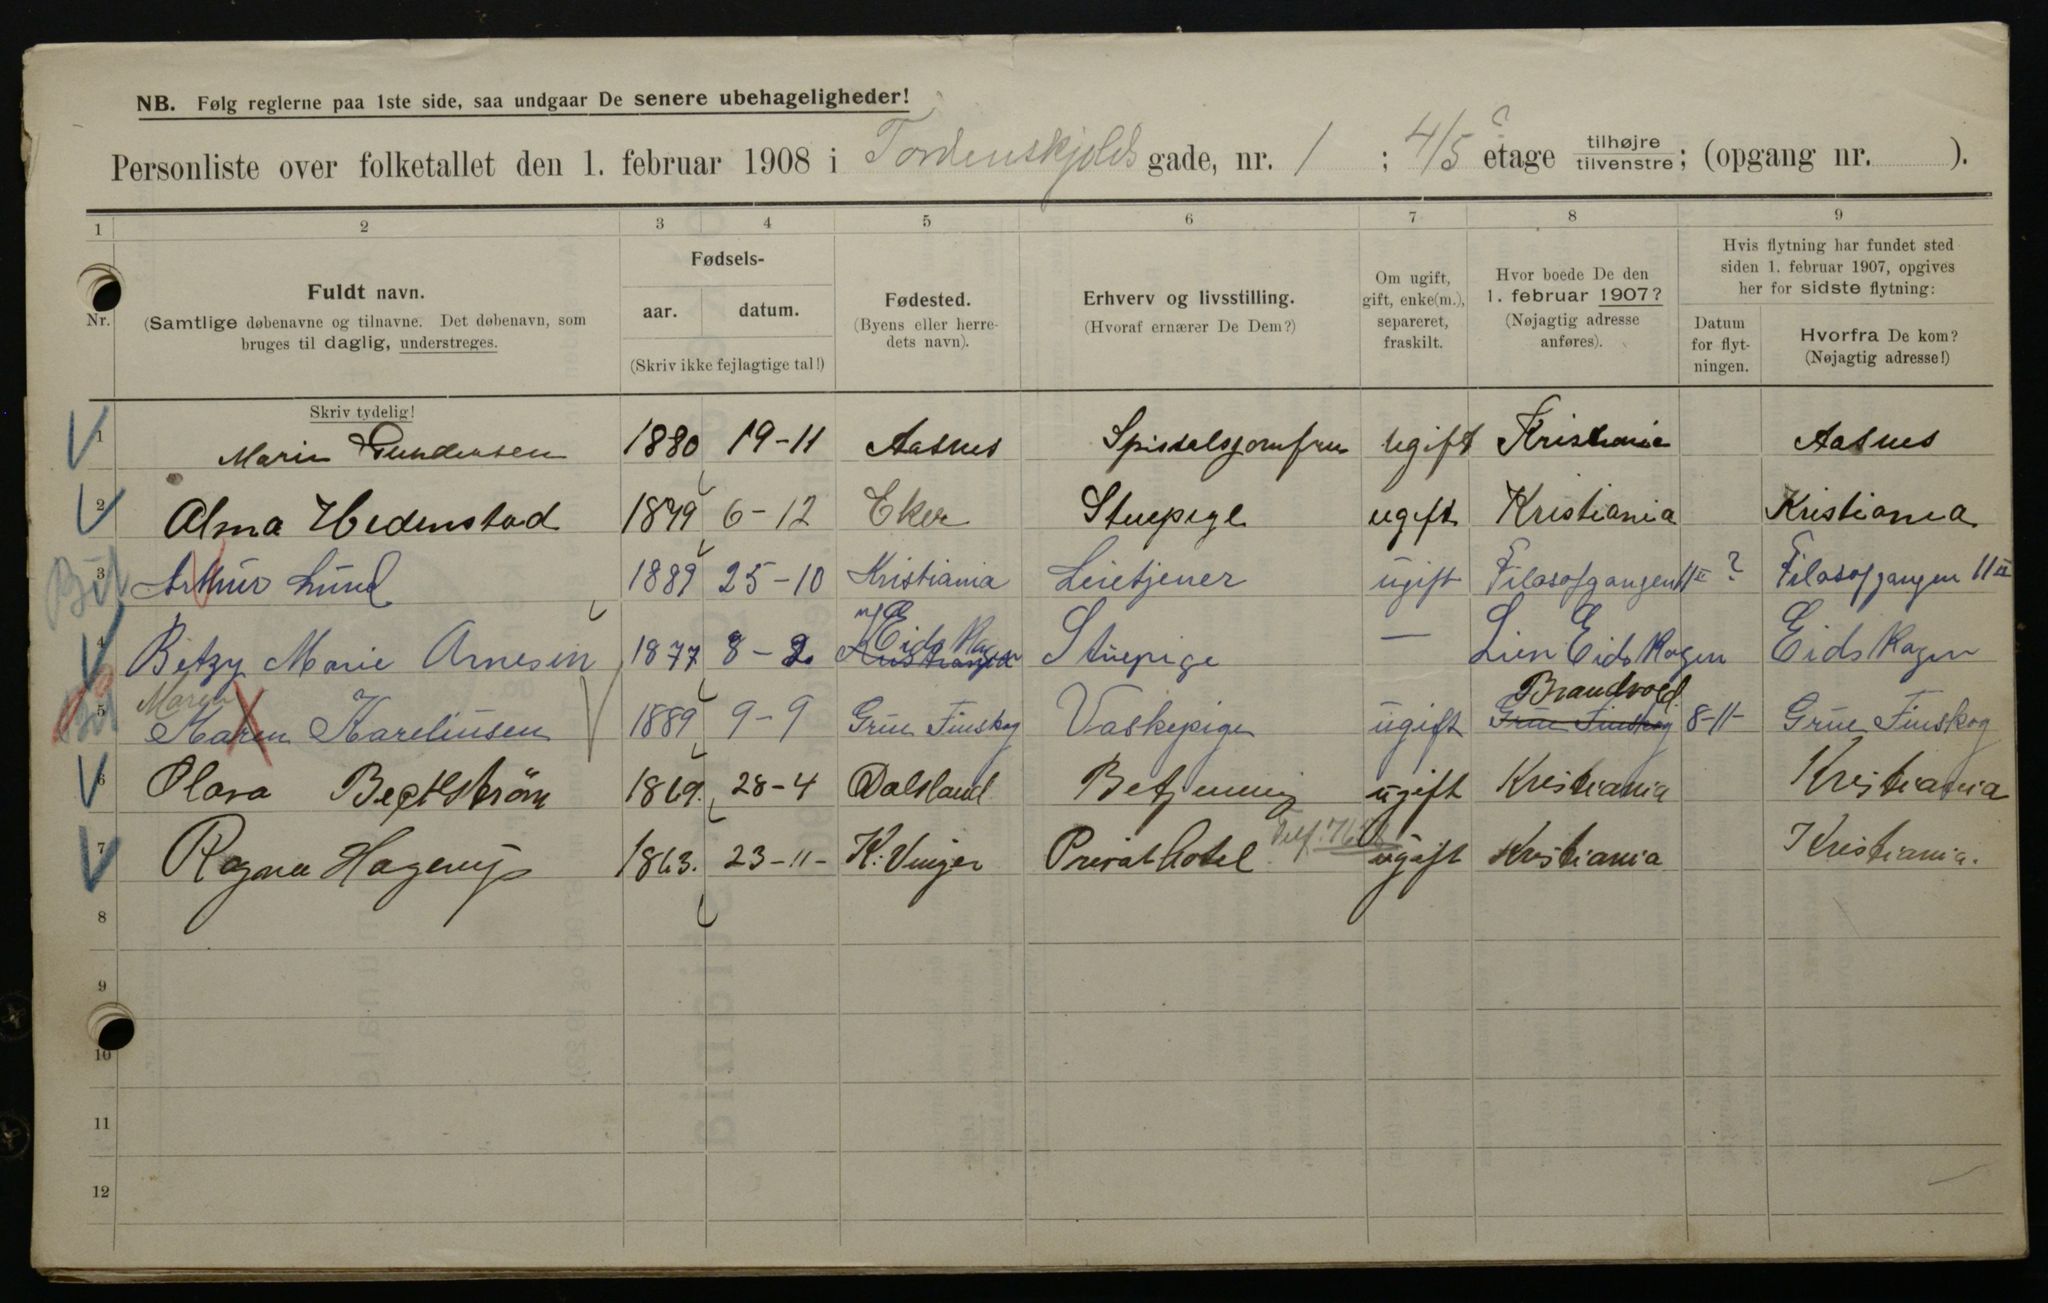 NB. Følg reglerne paa 1ste side, saa undgaar De senere ubehageligheder!
Personliste over folketallet den 1. februar 1908 i Tordenskjolds gade, nr. 1 ; 4/5 etage tilhøjre tilvenstre; (opgang nr. ).
1 2 3 4 5 6 7 8 9
Nr.
Fuldt navn.
(Samtlige døbenavne og tilnavne. Det døbenavn, som
bruges til daglig, understreges.
Fødsels-
aar. datum.
(Skriv ikke fejlagtige tal!)
Fødested.
(Byens eller herre-
dets navn).
Erhverv og livsstilling.
(Hvoraf ernærer De Dem?)
Om ugift,
gift, enke(m.),
separeret,
fraskilt.
Hvor boede De den
1. februar 1907?
(Nøjagtig adresse
anføres).
Hvis flytning har fundet sted
siden 1. februar 1907, opgives
her for sidste flytning:
Datum
for flyt-
ningen.
Hvorfra De kom?
(Nøjagtig adresse!)
Skriv tydelig!
1 Marie Gundersen 1880 19-11 Aasnes ugift Kristiania Aasnes
2 Alma Hedenstad 1879 6-12 Eker Stuepige ugift Kristiania Kristiania
3 Arthur Lund 1889 25-10 Kristiania Leietjener ugift Filosofgangen 11 II ? Filosofgangen 11 II
4 Betzy Marie Arnesen 1877 8-2 Eidskogen Kristiania Stuepige — Lien Eidskogen Eidskogen
Maren Brandvold
5 Maren Karelinsen 1889 9-9 Grue Finskog Vaskepige ugift Grue Finskog 8-11- Grue Finskog
6 Olava 1869. 28-4 Dalsland Betjening ugift Kristiania Kristiania
7 Ragna Hagerup 1863. 23-11- K. Vinger Privat Hotel Telf. ugift Kristiania Kristiania.
8
9
10
11
12